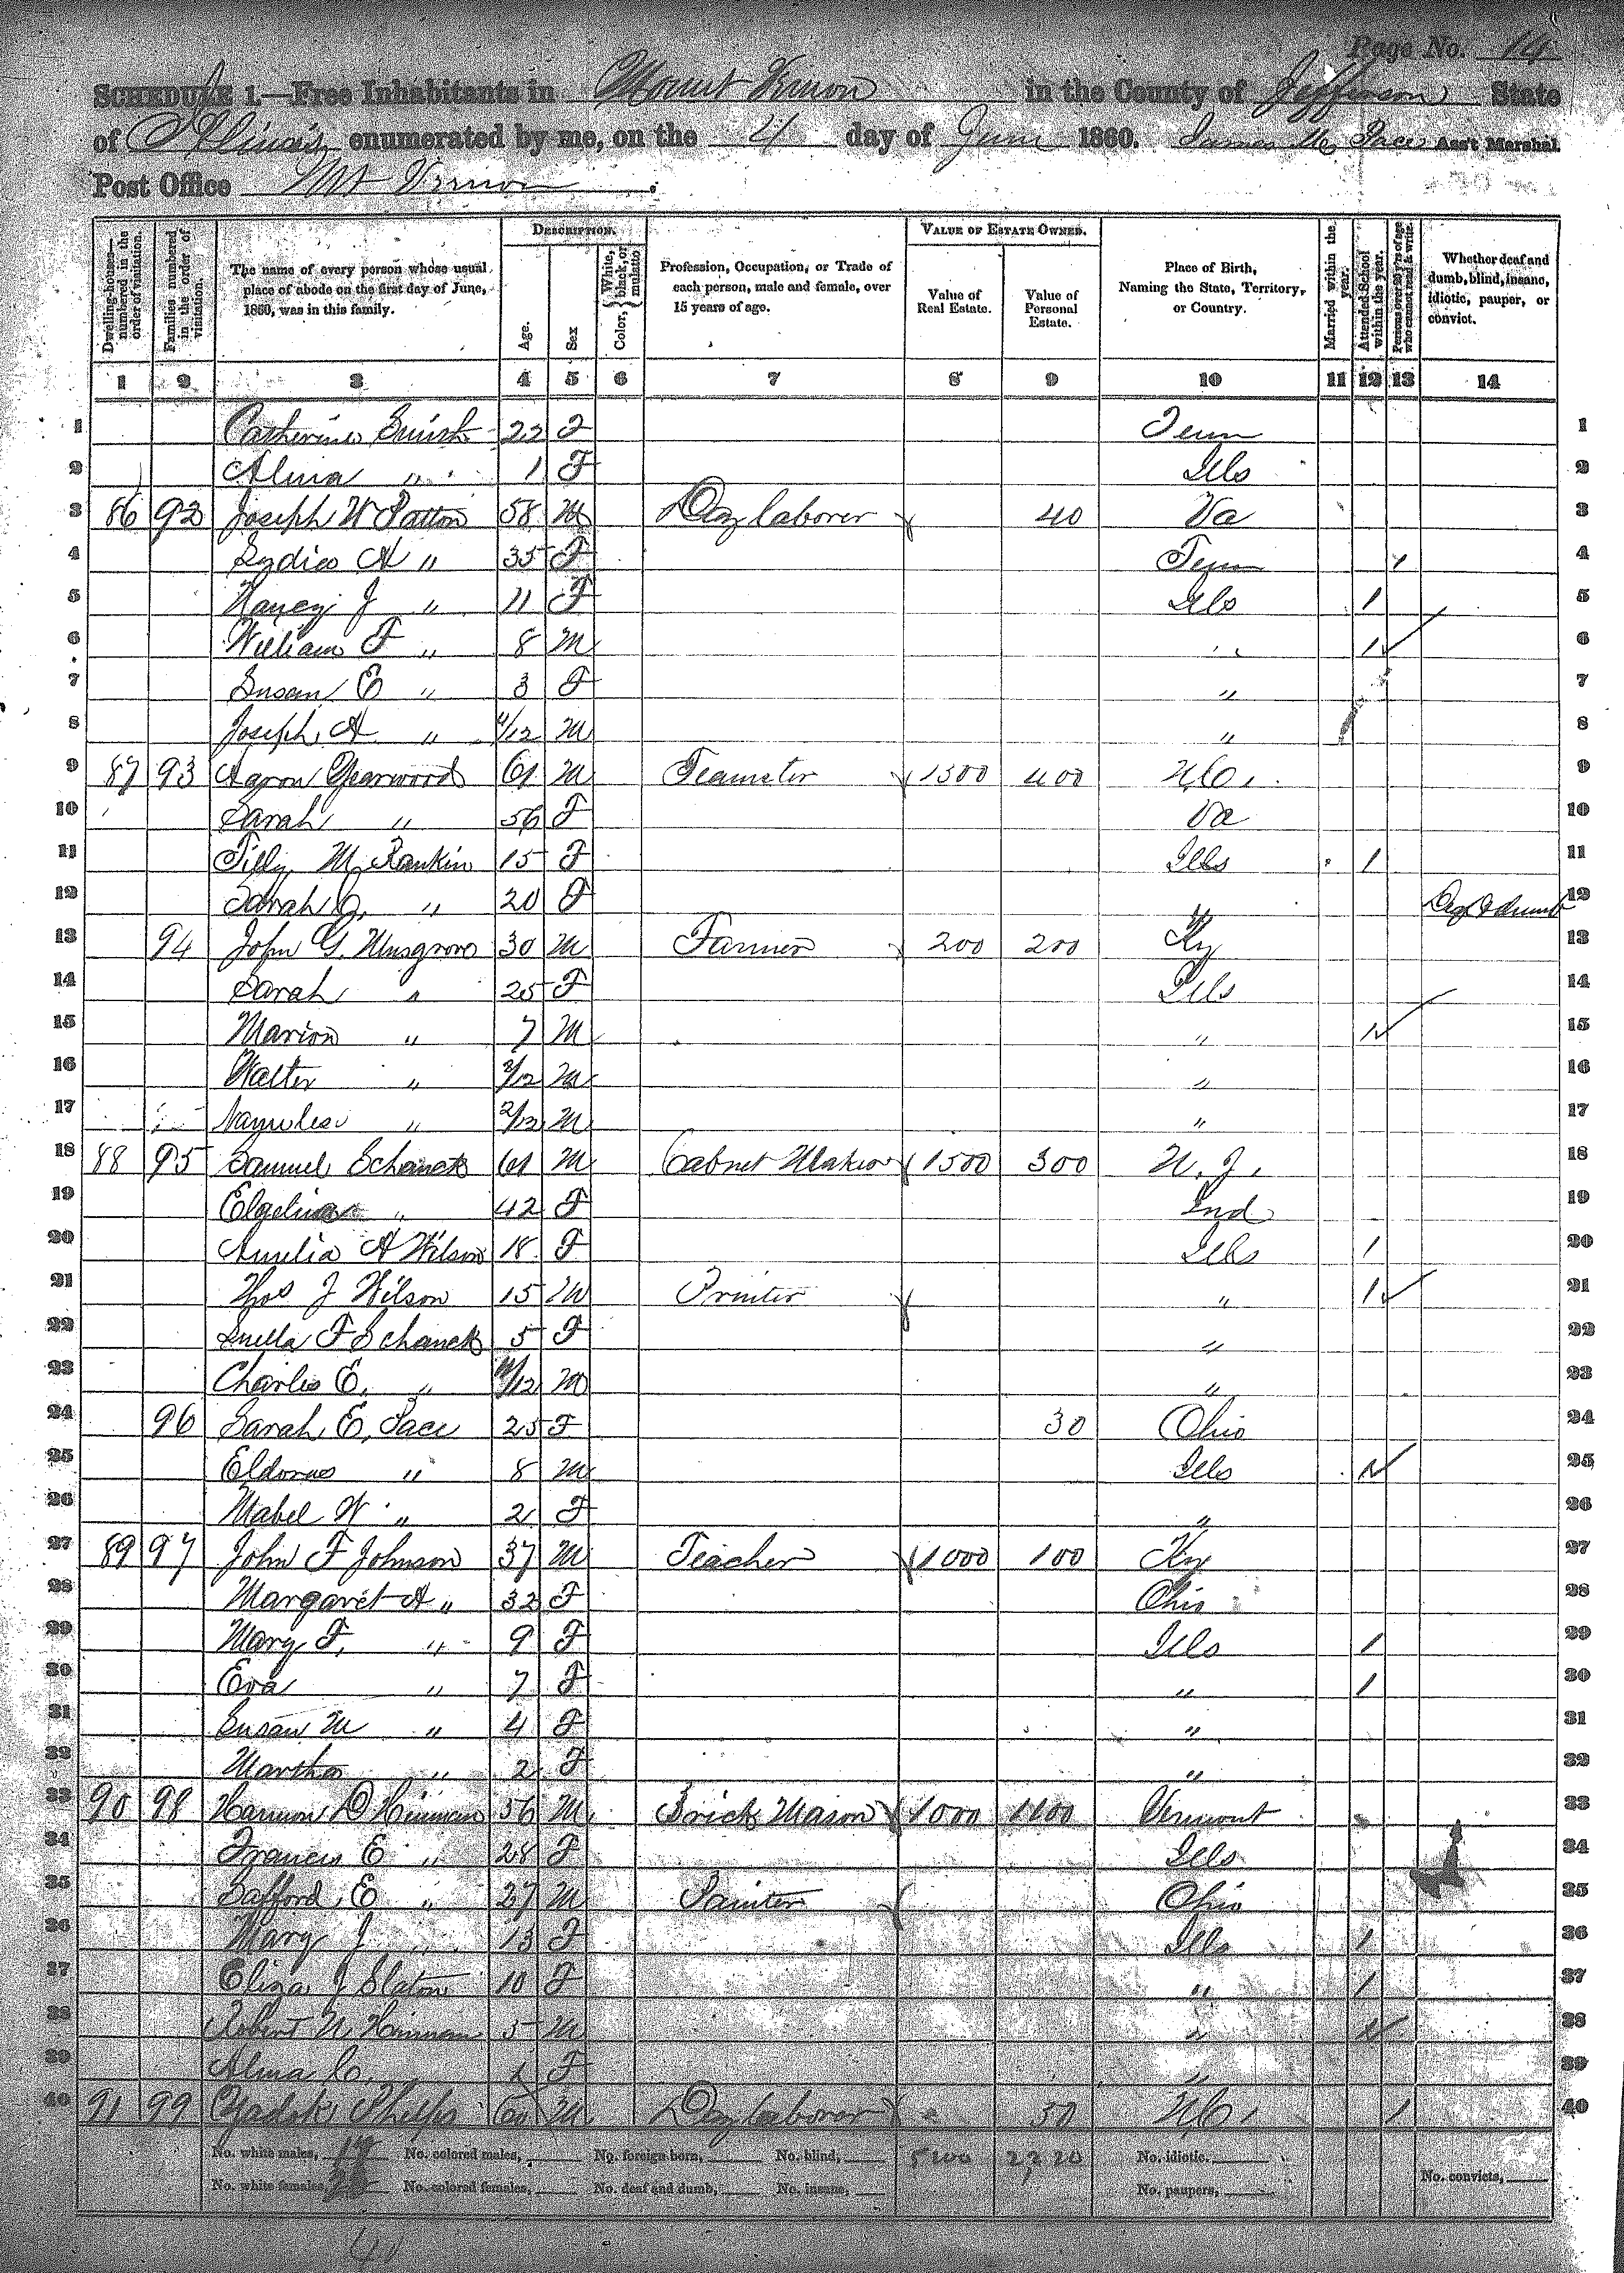 Page No. 14
SCHEDULE 1.—Free Inhabitants in Mount Vernon in the County of Jefferson State
of Illinois enumerated by me, on the 4 day of June 1860. James M. Pace Ass't Marshal.
Post Office Mt Vernon.
Dwelling-house—numbered in the order of visitation.
Families numbered in the order of visitation.
The name of every person whose usual place of abode on the first day of June, 1860, was in this family.
DESCRIPTION.
Age.
Sex
Color, White, black, or mulatto
Profession, Occupation, or Trade of each person, male and female, over 15 years of age.
VALUE OF ESTATE OWNED.
Value of Real Estate.
Value of Personal Estate.
Place of Birth, Naming the State, Territory, or Country.
Married within the year.
Attended School within the year.
Persons over 20 y'rs of age who cannot read & write.
Whether deaf and dumb, blind, insane, idiotic, pauper, or convict.
1 2 3 4 5 6 7 8 9 10 11 12 13 14
1 Catherine 22 F Tenn 1
2 Alma " 1 F Ills 2
3 86 92 Joseph W Patton 58 M Day laborer 40 Va 3
4 Lydia A " 35 F Tenn / 4
5 Nancy J " 11 F Ills 1 5
6 William F " 8 M " 1 6
7 Susan E " 3 F " 7
8 Joseph A " /12 M " 8
9 87 93 Aaron Yearwood 61 M Teamster 1300 400 N.C. 9
10 Sarah " 56 F Va 10
11 Tilly M Rankin 15 F Ills 1 11
12 Sarah C. " 20 F " Deaf & dumb 12
13 94 John G. Musgrove 30 M Farmer 200 200 Ky 13
14 Sarah " 25 F Ills 14
15 Marion " 7 M " 1 15
16 Walter " 2/12 M " 16
17 " 2/12 M " 17
18 88 95 Samuel Schanck 61 M Cabnet Maker 1500 300 N. J. 18
19 " 42 F Ind 19
20 Amelia A Wilson 18 F Ills 1 20
21 Thos J Wilson 15 M Printer " 1 21
22 Luella F Schanck 5 F " 22
23 Charles E. " /12 M " 23
24 96 Sarah E. Pace 25 F 30 Ohio 24
25 " 8 M Ills 1 25
26 Mabel W " 2 F " 26
27 89 97 John F Johnson 37 M Teacher 1000 100 Ky 27
28 Margaret A " 32 F Ohio 28
29 Mary F. " 9 F Ills 1 29
30 Eva " 7 F " 1 30
31 Susan M " 4 F " 31
32 Martha " 2 F " 32
33 90 98 Harmon D Hinman 56 M Brick Mason 1000 1100 Vermont 33
34 Francis E " 28 F Ills 34
35 Safford E " 27 M Painter Ohio 35
36 Mary J " 13 F Ills 1 36
37 Eliza J Slaton 10 F " 1 37
38 Robert N. Hinman 5 M " 1 38
39 Alma C. " 1 F " 39
40 91 99 Phelps 60 M Day laborer " 50 N.C. 1 40
No. white males, No. colored males, No. foreign born, No. blind, 5100 2320 No. idiotic,
No. white females, No. colored females, No. deaf and dumb, No. insane, No. paupers, No. convicts,
40